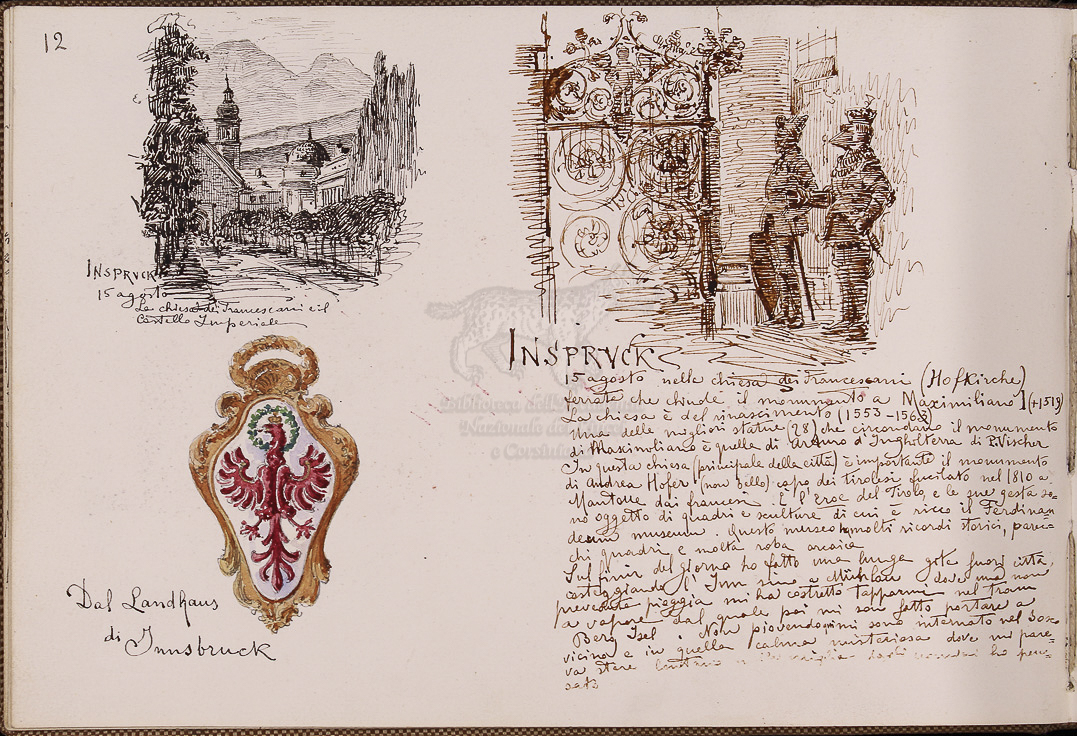 12
INSPRVCK
15 agosto
La chiesa dei Francescani e il
Castello Imperiale
Dal Landhaus
di
Innsbruck
INSPRVCK
15 agosto nella chiesa dei Francescani (Hofkirche)
ferrata che chiude il monumento a Maximiliano I (+1519)
La chiesa è del rinascimento (1553-1563)
Una delle migliori statue (28) che circondano il monumento
di Maximiliano è quella di Arturo d'Inghilterra di P. Vischer
In questa chiesa (principale della città) è importante il monumento
di Andrea Hofer (non bello) capo dei tirolesi fucilato nel 1810 a
Mantova dai francesi. È l'Eroe del Tirolo, e le sue gesta so=
no oggetto di quadri e sculture di cui è ricco il Ferdinan
deum museum. Questo museo ha molti ricordi storici, parec=
chi quadri e molta roba arcaica
Sul finir del giorno ho fatto una lunga gita fuori città,
costeggiando l'Inn sino a Mühlau dove una non
prevenuta pioggia mi ha costretto tapparmi nel tram
a vapore dal quale poi mi son fatto portare a
Berg Isel. Non piovendo mi sono internato nel bosco
vicino e in quella calma misteriosa dove mi pare=
va stare lontano mille miglia dagli uomini ho pen=
sato
Biblioteca dell'
Nazionale dei
e Consulta